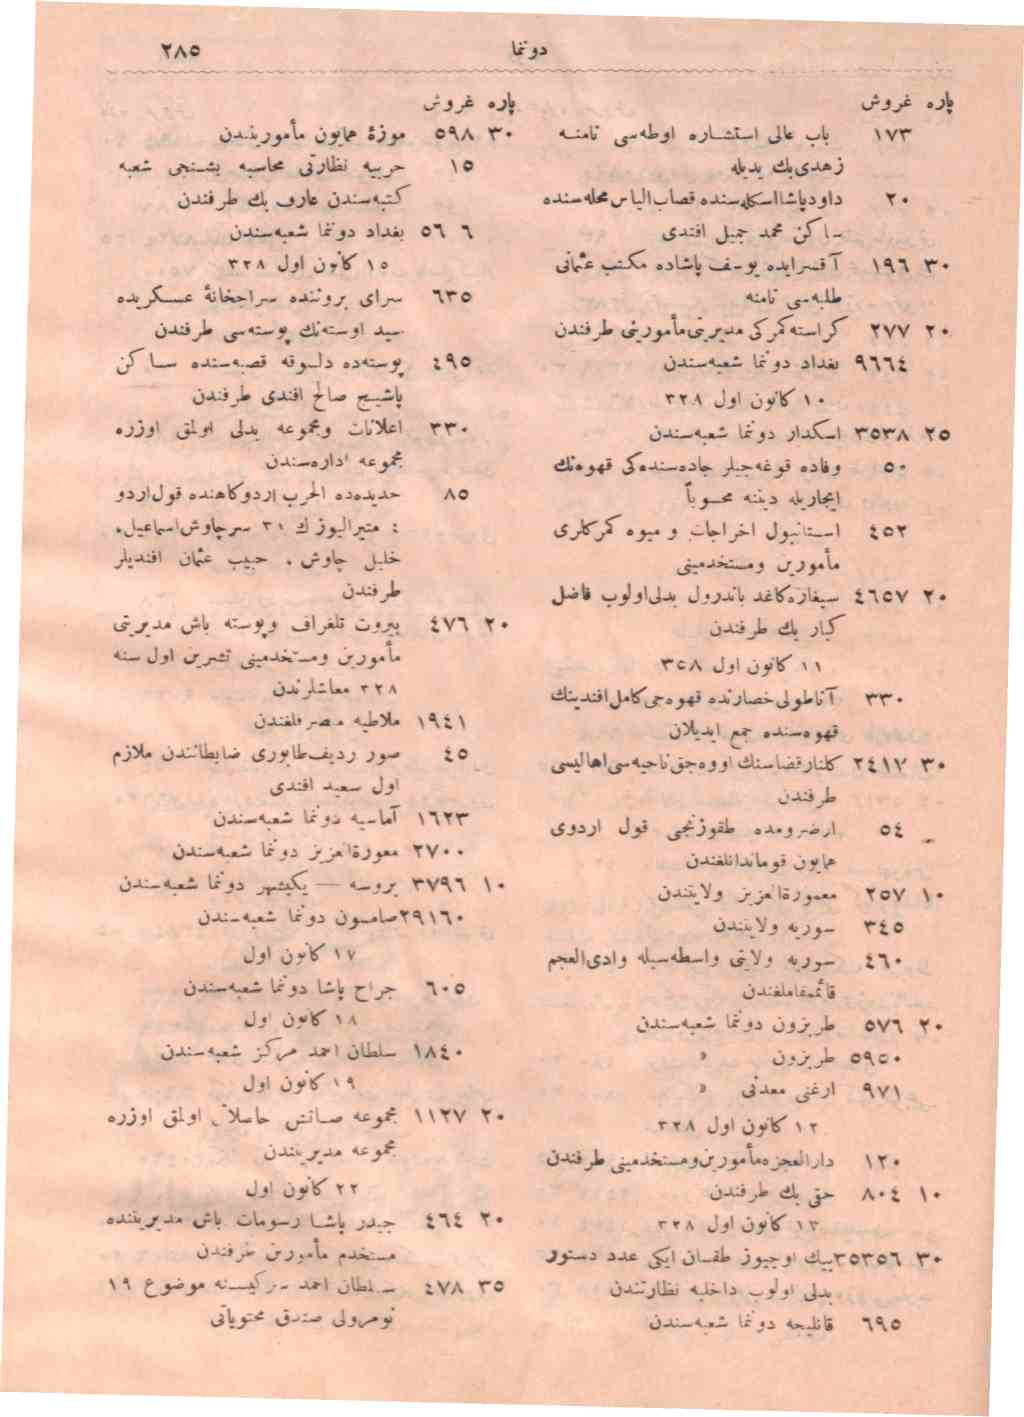 دوننما ٢٨٥
پاره غروش
١٧٣ باب عالی استشاره اوطه‌سی نامنه
زهدی بك یدیله
٢٠ داودپاشا اسكله‌سنده قصاب الیاس محله‌سنده
ساكن محمد جمیل افندی
٣٠ ١٩٦ آقسرایده یوسف پاشاده مكتب عثمانی
طلبه‌سی نامنه
٢٠ ٢٧٧ كراسته كمركی مدیریتی مأمورینی طرفندن
٩٦٦٤ بغداد دوننما شعبه‌سندن
١٠ كانون اول ٣٢٨
٢٥ ٣٥٣٨ اسكدار دوننما شعبه‌سندن
٥٠ وفاده قوغه‌جیلر جاده‌سنده‌كی قهوه‌نك
ایجاریله دیننه محسوباً
٤٥٢ استانبول اخراجات و میوه كمركلری
مأمورین ومستخدمینی
٢٠ ٤٦٥٧ سیغاره كاغد باندرول بدلی اولوب فاضل
كبار بك طرفندن
١١ كانون اول ٣٢٨
٣٣٠ آناطولی حصارنده قهوه‌جی كامل افندینك
قهوه‌سنده جمع ایدیلان
٣٠ ٢٤١٧ كلنار قضاسنك اووه‌جق ناحیه‌سی اهالیسی
طرفندن
٥٤ ارضرومده طقوزنجی قول اردوی
همایون قوماندانلغندن
١٠ ٢٥٧ معمورةالعزیز ولایتندن
٣٤٥ سوریه ولایتندن
٤٦٠ سوریه ولایتی واسطه‌سیله وادی‌العجم
قائممقاملغندن
٢٠ ٥٧٦ طربزون دوننما شعبه‌سندن
٥٩٥٠ طربزون »
٩٧١ ارغنی معدنی »
١٢ كانون اول ٣٢٨
١٢٠ دارالعجزه مأمورین ومستخدمینی طرفندن
١٠ ٨٠٤ حقی بك طرفندن
١٣ كانون اول ٣٢٨
٣٠ ٣٥٣٥٦ بیك اوچیوز طقسان ایكی عدد دستور
بدلی اولوب داخلیه نظارتندن
٦٩٥ قانلیجه دوننما شعبه‌سندن
پاره غروش
٣٠ ٥٩٨ موزهٔ همایون مأموریندن
١٥ حربیه نظارتی محاسبه بشنجی شعبه
كتبه‌سندن عارف بك طرفندن
٦ ٥٦ بغداد دوننما شعبه‌سندن
١٥ كانون اول ٣٢٨
٦٣٥ سرای بروننده سراجخانهٔ عسكریده
سید اوسته‌نك پوسته‌سی طرفندن
٤٩٥ پوسته‌ده دلوقه قصبه‌سنده ساكن
پاشیج صالح افندی طرفندن
٣٣٠ اعلانات ومجموعه بدلی اولمق اوزره
مجموعه اداره‌سندن
٨٥ حدیده‌ده الحرب اردوكاهنده قول اردو
٤ متیرالیوزك ٣١ سرچاوش اسماعیل.
خلیل چاوش . حبیب عثمان افندیلر
طرفندن
٢٠ ٤٧٦ بیروت تلغراف وپوسته باش مدیریتی
مأمورین ومستخدمینی تشرین اول سنه
٣٢٨ معاشلرندن
١٩٤١ ملاطیه متصرفلغندن
٤٥ صور ردیف طابوری ضابطانندن ملازم
اول سعید افندی
١٦٢٣ آماسیه دوننما شعبه‌سندن
٢٧٠٠ معمورةالعزیز دوننما شعبه‌سندن
١٠ ٣٧٩٦ بروسه — یكیشهر دوننما شعبه‌سندن
٢٩١٦٠ صامسون دوننما شعبه‌سندن
١٧ كانون اول
٦٠٥ جراح پاشا دوننما شعبه‌سندن
١٨ كانون اول
١٨٤٠ سلطان احمد مركز شعبه‌سندن
١٩ كانون اول
٢٠ ١١٢٧ مجموعه صاتش حاصلاتی اولمق اوزره
مجموعه مدیریتندن
٢٢ كانون اول
٢٠ ٤٦٤ حیدر پاشا رسومات باش مدیریتنده
مستخدم مأمورین طرفندن
٣٥ ٤٧٨ سلطان احمد مركزینه موضوع ١٩
نومرولی صندق محتویاتی